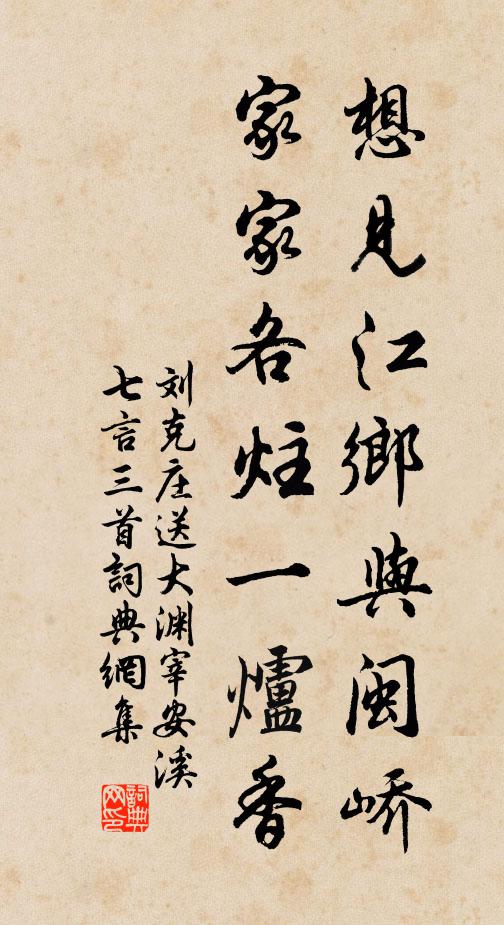 想見江鄉與閩嶠
家家各炷一爐香
刘克庄送大渊宰安溪
七言三首詞典網集
詞典网印